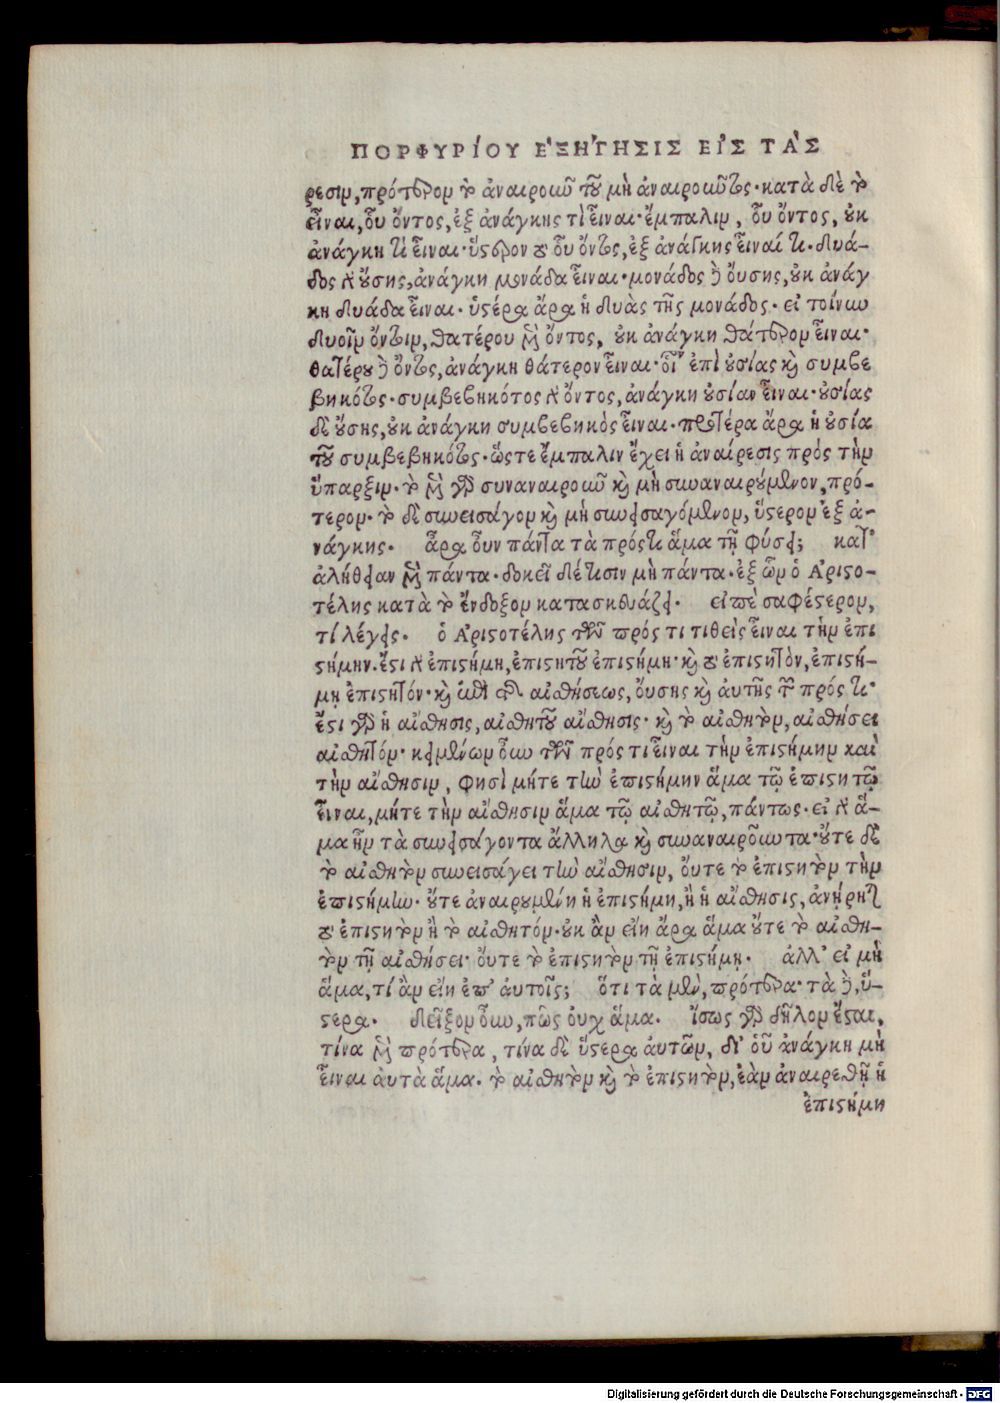 ΠΟΡΦΥΡΙΟΥ ΕΞΗΓΗΣΙΣ ΕΙΣ ΤΑΣ
ρεσιν, πρότερον τὸ ἀναιροῦν τοῦ μὴ ἀναιροῦντος· κατὰ δὲ τὸ
εἶναι, οὗ ὄντος, ἐξ ἀνάγκης τὶ εἶναι· ἔμπαλιν, οὗ ὄντος, οὐκ
ἀνάγκη τι εἶναι· ὕστερον τὸ οὗ ὄντος, ἐξ ἀνάγκης εἶναί τι. δυά-
δος δὲ οὔσης, ἀνάγκη μονάδα εἶναι· μονάδος δὲ οὔσης, οὐκ ἀνάγ
κη δυάδα εἶναι. ὑστέρα ἄρα ἡ δυὰς τῆς μονάδος. εἰ τοίνυν
δυοῖν ὄντοιν, θατέρου μὲν ὄντος, οὐκ ἀνάγκη θάτερον εἶναι·
θατέρου δὲ ὄντος, ἀνάγκη θάτερον εἶναι· οἷον ἐπὶ οὐσίας καὶ συμβε
βηκότος· συμβεβηκότος δὲ ὄντος, ἀνάγκη οὐσίαν εἶναι· οὐσίας
δὲ οὔσης, οὐκ ἀνάγκη συμβεβηκὸς εἶναι. προτέρα ἄρα ἡ οὐσία
τοῦ συμβεβηκότος. ὥςτε ἔμπαλιν ἔχει ἡ ἀναίρεσις πρὸς τὴν
ὕπαρξιν. τὸ μὲν γὰρ συναναιροῦν καὶ μὴ συναναιρούμενον, πρό-
τερον. τὸ δὲ συνεισάγον καὶ μὴ συνεισαγόμενον, ὕστερον ἐξ ἀ-
νάγκης. ἆρα οὖν πάντα τὰ πρός τι ἅμα τῇ φύσει; κατ'
ἀλήθειαν μὲν πάντα. δοκεῖ δέ τισιν μὴ πάντα. ἐξ ὧν ὁ Ἀριστο-
τέλης κατὰ τὸ ἔνδοξον κατασκευάζει. εἰπὲ σαφέστερον,
τί λέγεις. ὁ Ἀριστοτέλης τῶν πρός τι τιθεὶς εἶναι τὴν ἐπι
στήμην. ἔστι δὲ ἐπιστήμη, ἐπιστητοῦ ἐπιστήμη· καὶ τὸ ἐπιστητὸν, ἐπιστή-
μῃ ἐπιστητόν· καὶ ἐπὶ τῆς αἰσθήσεως, οὔσης καὶ αὐτῆς τῶν πρός τι·
ἔστι γὰρ ἡ αἴσθησις, αἰσθητοῦ αἴσθησις· καὶ τὸ αἰσθητὸν, αἰσθήσει
αἰσθητόν· κειμένων οὖν τῶν πρός τι εἶναι τὴν ἐπιστήμην καὶ
τὴν αἴσθησιν, φησὶ μήτε τὴν ἐπιστήμην ἅμα τῷ ἐπιστητῷ
εἶναι, μήτε τὴν αἴσθησιν ἅμα τῷ αἰσθητῷ, πάντως. εἰ δὲ ἅ-
μα ἦν τὰ συνεισάγοντα ἄλληλα καὶ συναναιροῦντα· οὔτε δὲ
τὸ αἰσθητὸν συνεισάγει τὴν αἴσθησιν, οὔτε τὸ ἐπιστητὸν τὴν
ἐπιστήμην. οὔτε ἀναιρουμένη ἡ ἐπιστήμη, ἢ ἡ αἴσθησις, ἀνῄρηται
τὸ ἐπιστητὸν ἢ τὸ αἰσθητόν. οὐκ ἂν εἴη ἄρα ἅμα οὔτε τὸ αἰσθη-
τὸν τῇ αἰσθήσει· οὔτε τὸ ἐπιστητὸν τῇ ἐπιστήμῃ. ἀλλ' εἰ μὴ
ἅμα, τί ἂν εἴη ἐπ' αὐτοῖς; ὅτι τὰ μὲν, πρότερα· τὰ δὲ, ὕ-
στερα. δεῖξον οὖν, πῶς οὐχ ἅμα. ἴσως γὰρ δῆλον ἔσται,
τίνα μὲν πρότερα, τίνα δὲ ὕστερα αὐτῶν, δι' οὗ ἀνάγκη μὴ
εἶναι αὐτὰ ἅμα. τὸ αἰσθητὸν καὶ τὸ ἐπιστητὸν, ἐὰν ἀναιρεθῇ ἡ
ἐπιστήμη
Digitalisierung gefördert durch die Deutsche Forschungsgemeinschaft - DFG